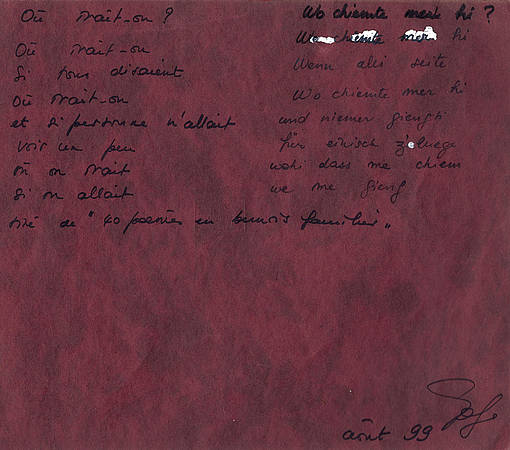 Où irait-on ?
Où irait-on
Si tous disaient
Où irait-on
et si personne n'allait
voir un peu
où on irait
Si on allait
tiré de "40 poèmes en bernois familier"
Wo chiemte mer hi ?
Wo chiemte mer hi
Wenn alli seite
Wo chiemte mer hi
und niemer giengti
für einisch z'luege
wohi dass me chiem
we me gieng
août 99